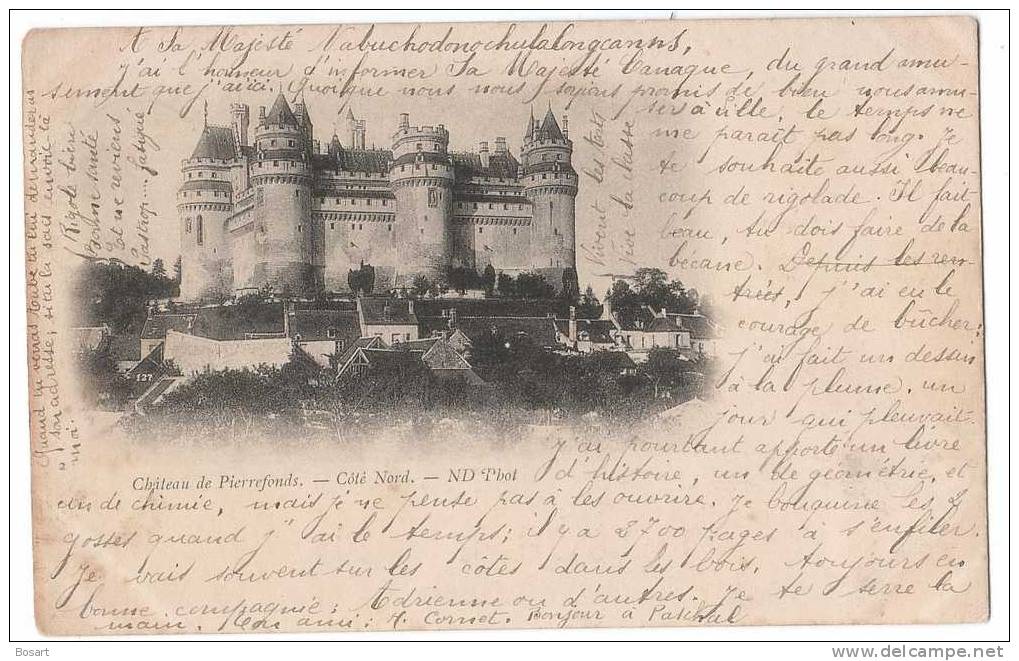 A Sa Majesté Nabuchodonochulalongcanns,
j'ai l'honneur d'informer Sa Majesté Canaque, du grand amu-
sement que j'ai ici. Quoique nous nous soyons promis de bien nous amu-
ser à ville, le temps ne
me paraît pas long. Je
te souhaite aussi beau-
coup de rigolade. Il fait
beau, tu dois faire de la
bécane. Depuis les ren-
trées, j'ai eu le
courage de bûcher:
j'ai fait un dessin
à la plume, un
jour qui pleuvait.
J'ai pourtant apporté un livre
d'histoire, un de géométrie, et
un de chimie, mais je ne pense pas à les ouvrire. Je bouquine les
gosses quand j'ai le temps; il y a 2700 pages à s'enfiler.
Je vais souvent sur les côtes dans les bois, toujours en
bonne compagnie: Adrienne ou d'autres. Je te serre la
main. Ton ami: H. Cornet. Bonjour à Paschal
Vivent les tots
vive la classe
Rigole bien
Bonne santé
et ne reviens
pas trop... fatigué
Quand tu verras tu lui demanderas
son adresse, si tu la sais envoie la
moi.
127
Château de Pierrefonds. — Côté Nord. — ND Phot
Bosart
www.delcampe.net